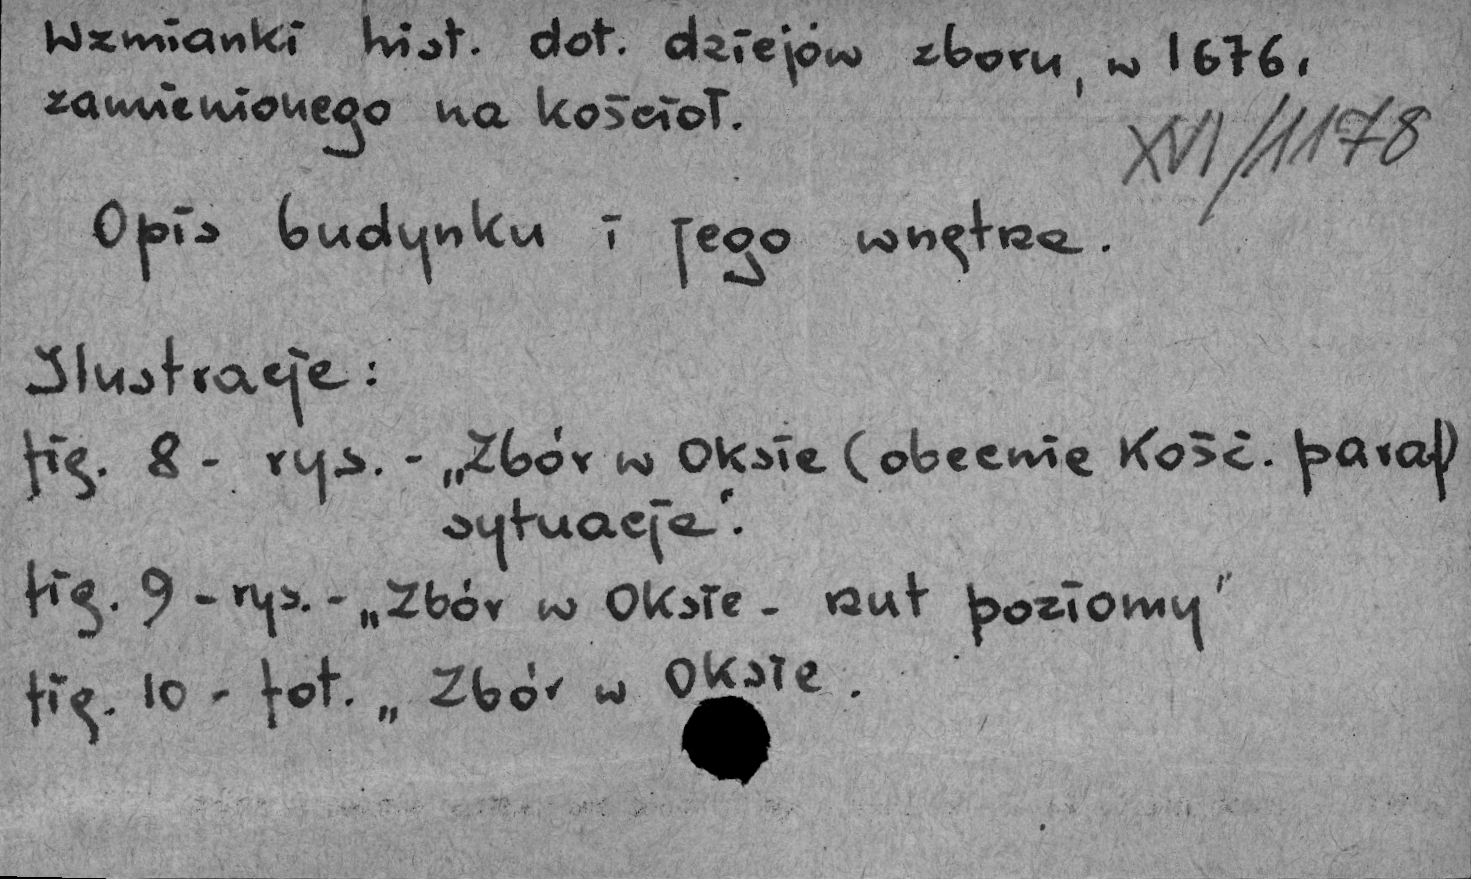 Wzmianki hist. dot. dziejów zboru, w 1676.
zamienionego na kościoł.
XVI/1178
Opis budynku i jego wnętrza.
Ilustracje:
fig. 8 - rys. - „Zbór w Oksie (obecnie Kość. paraf)
sytuacja".
fig. 9 - rys. - „Zbór w Oksie - rzut poziomy"
fig. 10 - fot. „Zbór w Oksie.